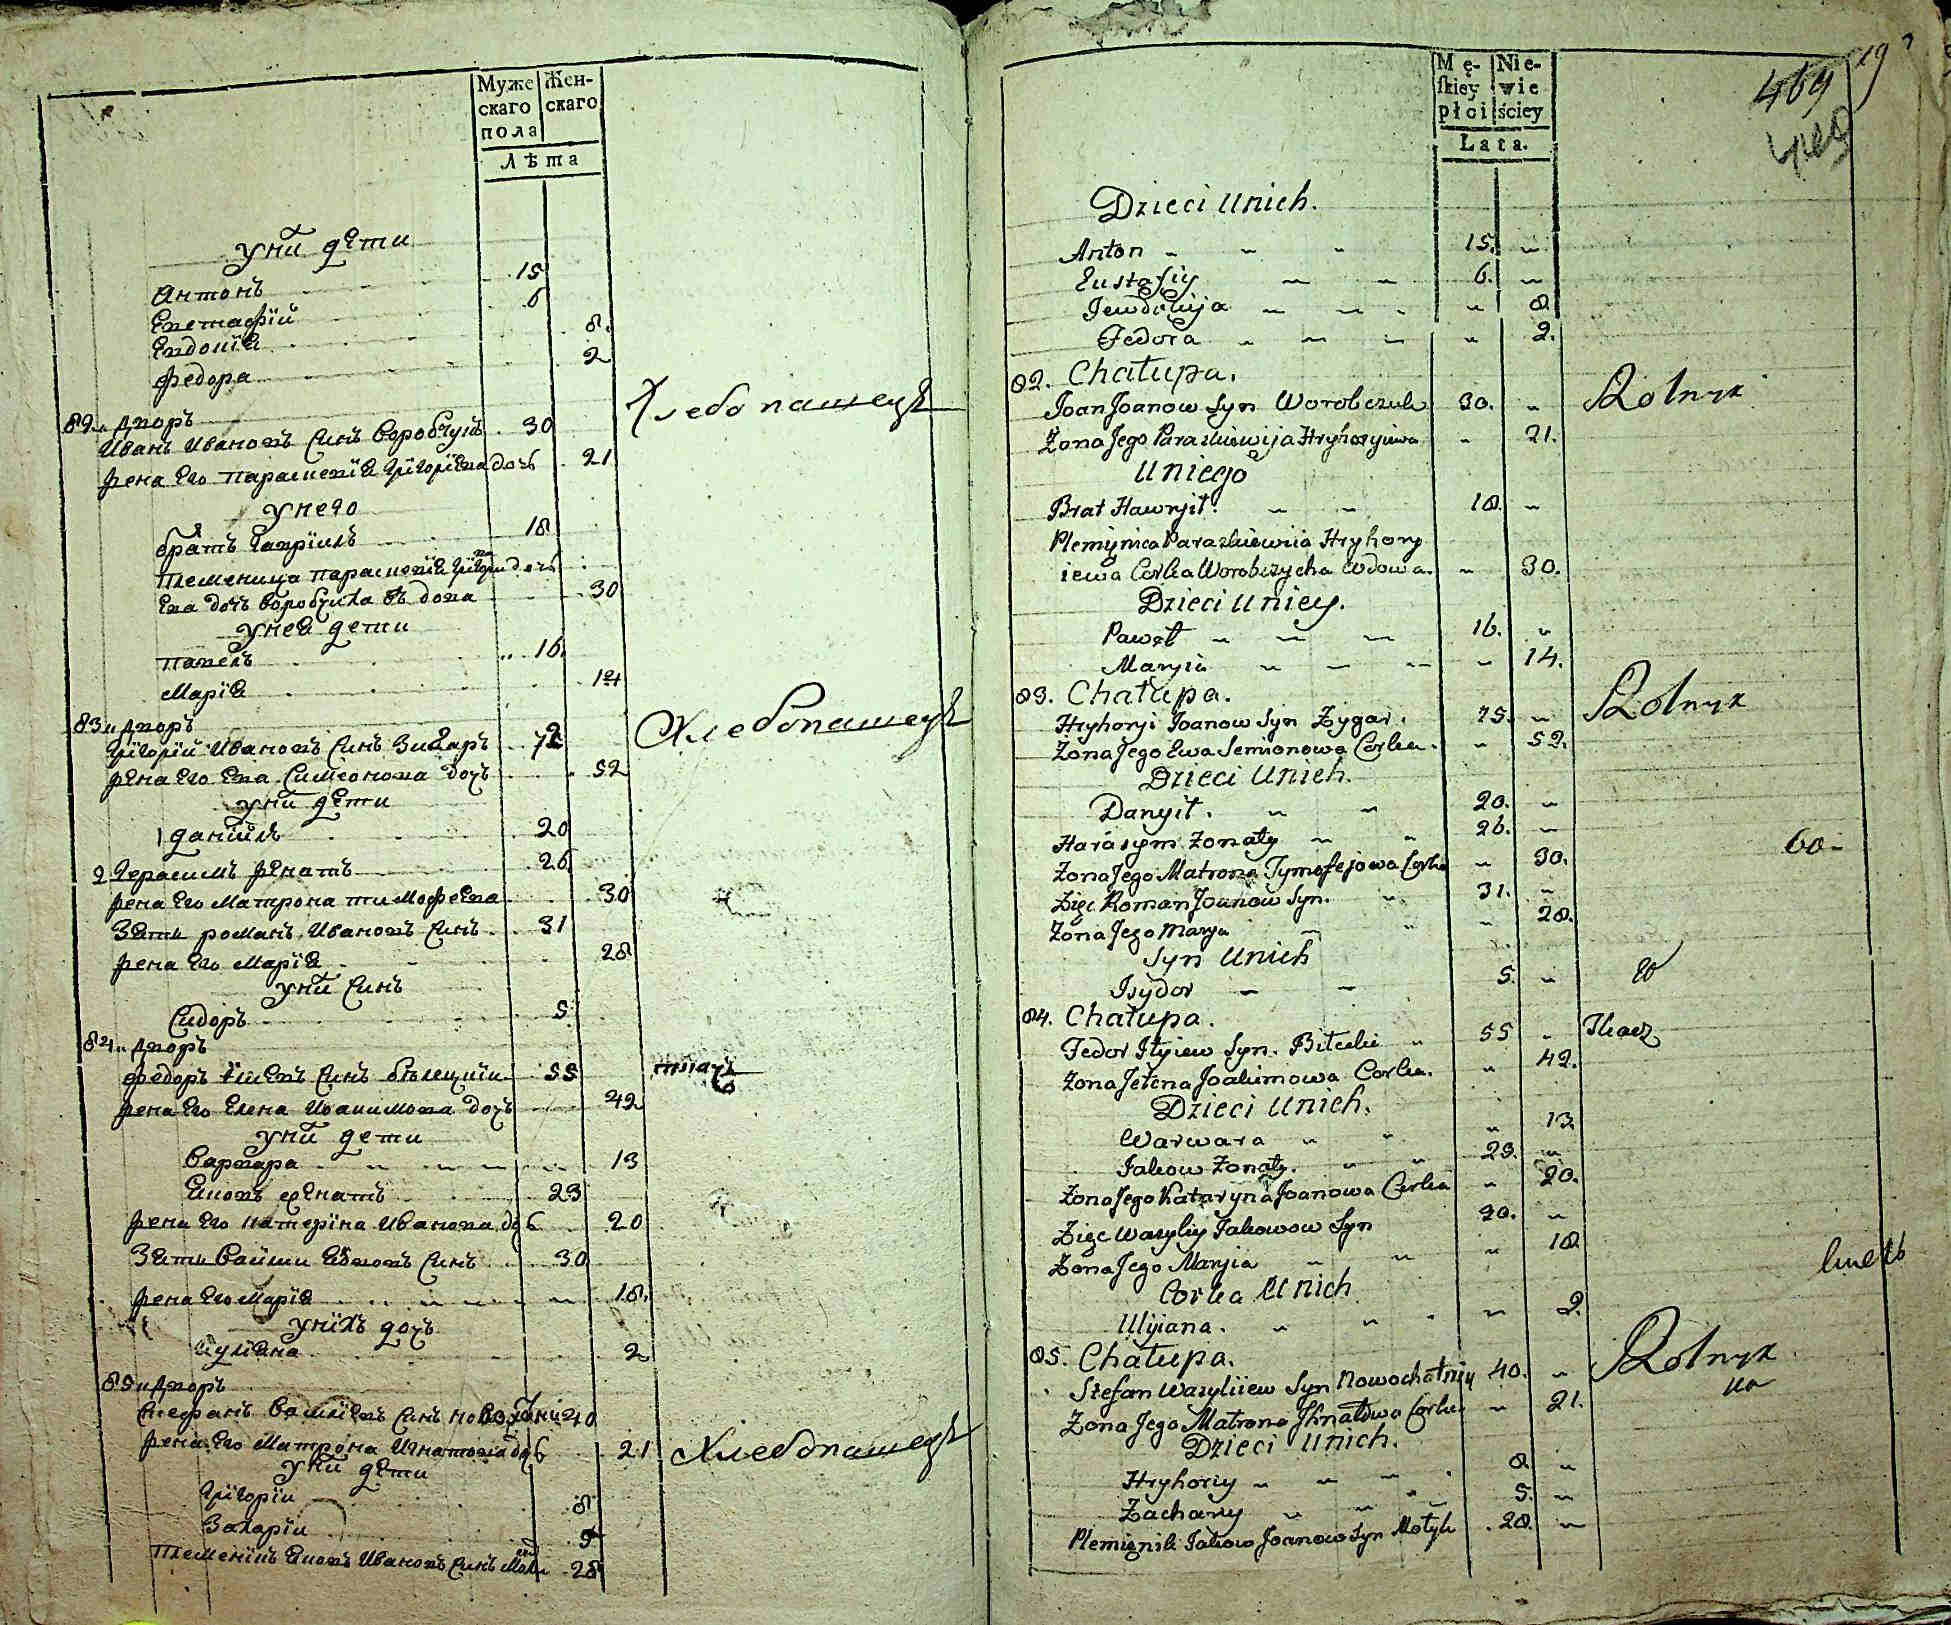 Муже Жен-
скаго скаго
пола
Лѣта
уни дети
Антонъ 15
Евстафїй 6
Евдокїя 8.
Федора 2
82. дворъ
Иванъ Ивановъ синъ Воробчукъ 30 Хлебопашецъ
жена его Параскевїя Григорїева дочь 21
унего
братъ Гаврїилъ 18
племеница Параскевїя Григори
ева дочъ Воробчиха вдова 30
уней дети
Павелъ 16.
Марїя 14
83 дворъ
Григорїй Ивановъ синъ Зигаръ 75 Хлебопашецъ
жена его Ева Симеонова дочъ 52
уни дети
1 Данїилъ 20
2 Герасимъ женатъ 26
жена его Матрона Тимофеева 30
Зять Романъ Ивановъ синъ 31
жена его Марїя 28
уни синъ
Сидоръ 5
84 дворъ
Федоръ Илиевъ синъ Белецкїи 55 ткачъ
жена его Елена Иоакимова дочъ 42
уни дети
Варвара 13
Яковъ женатъ 23
жена его Катерїна Иванова дочь 20
Зять Василий Якововъ синъ 30
жена его Марїя 18.
унїхъ дочъ
Иулїана 2
85 дворъ
Стефанъ Василїевъ синъ Новохатни 40
жена его Матрона Игнатова дочь 21 Хлебопашецъ
уни дети
Григорїи 8
Захарїи 5
племенїкъ Яковъ Ивановъ синъ 28
Mę- Nie-
skiey wie
płci ściey
Lata.
469
19
Dzieci Unich.
Anton 15. "
Eustafiy 6. "
Jewdokija " 8
Fedora " 2.
82. Chałupa.
Joan Joanow Syn Worobczuk 30. " Rolnyk
Żona Jego Paraskiewija Hryhoryiewa " 21.
Uniego
Brat Hawryił. 18. "
Plemiȩnica Paraskiewiia Hryhory
iewa Corka Worobczycha wdowa. " 30.
Dzieci Uniey.
Paweł 16. "
Maryia " 14.
83. Chałupa.
Hryhoryi Joanow Syn Zygar. 75. " Rolnyk
Żona Jego Ewa Semionowa Corka. " 52.
Dzieci Unich.
Danyił. 20. "
Harasym Żonaty 26. "
Żona Jego Matrona Tymofejowa Corka " 30.
60-
Zięc Roman Joanow Syn. 31. "
Żona Jego Marya " 28.
Syn Unich
Isydor 5. "
84. Chałupa.
Fedor Ilyiew Syn. Bilecki 55 " Tkacz
Żona Jełena Joakimowa Corka. " 42.
Dzieci Unich.
Warwara " 13.
Jakow Żonaty. 23. "
Żona Jego Kataryna Joanowa Corka " 20.
Zięc Wasyliy Jakowow Syn 30. "
Żona Jego Maryia " 18
Corka Unich
Ulyiana. " 2.
85. Chałupa.
Stefan Wasyliiew Syn Nowochatniy 40. " Rolnyk
Żona Jego Matrona Ihnatowa Corka " 21.
Dzieci Unich.
Hryhoriy 8 "
Zachariy 5. "
Plemięnik Jakow Joanow Syn Motyk 28. "